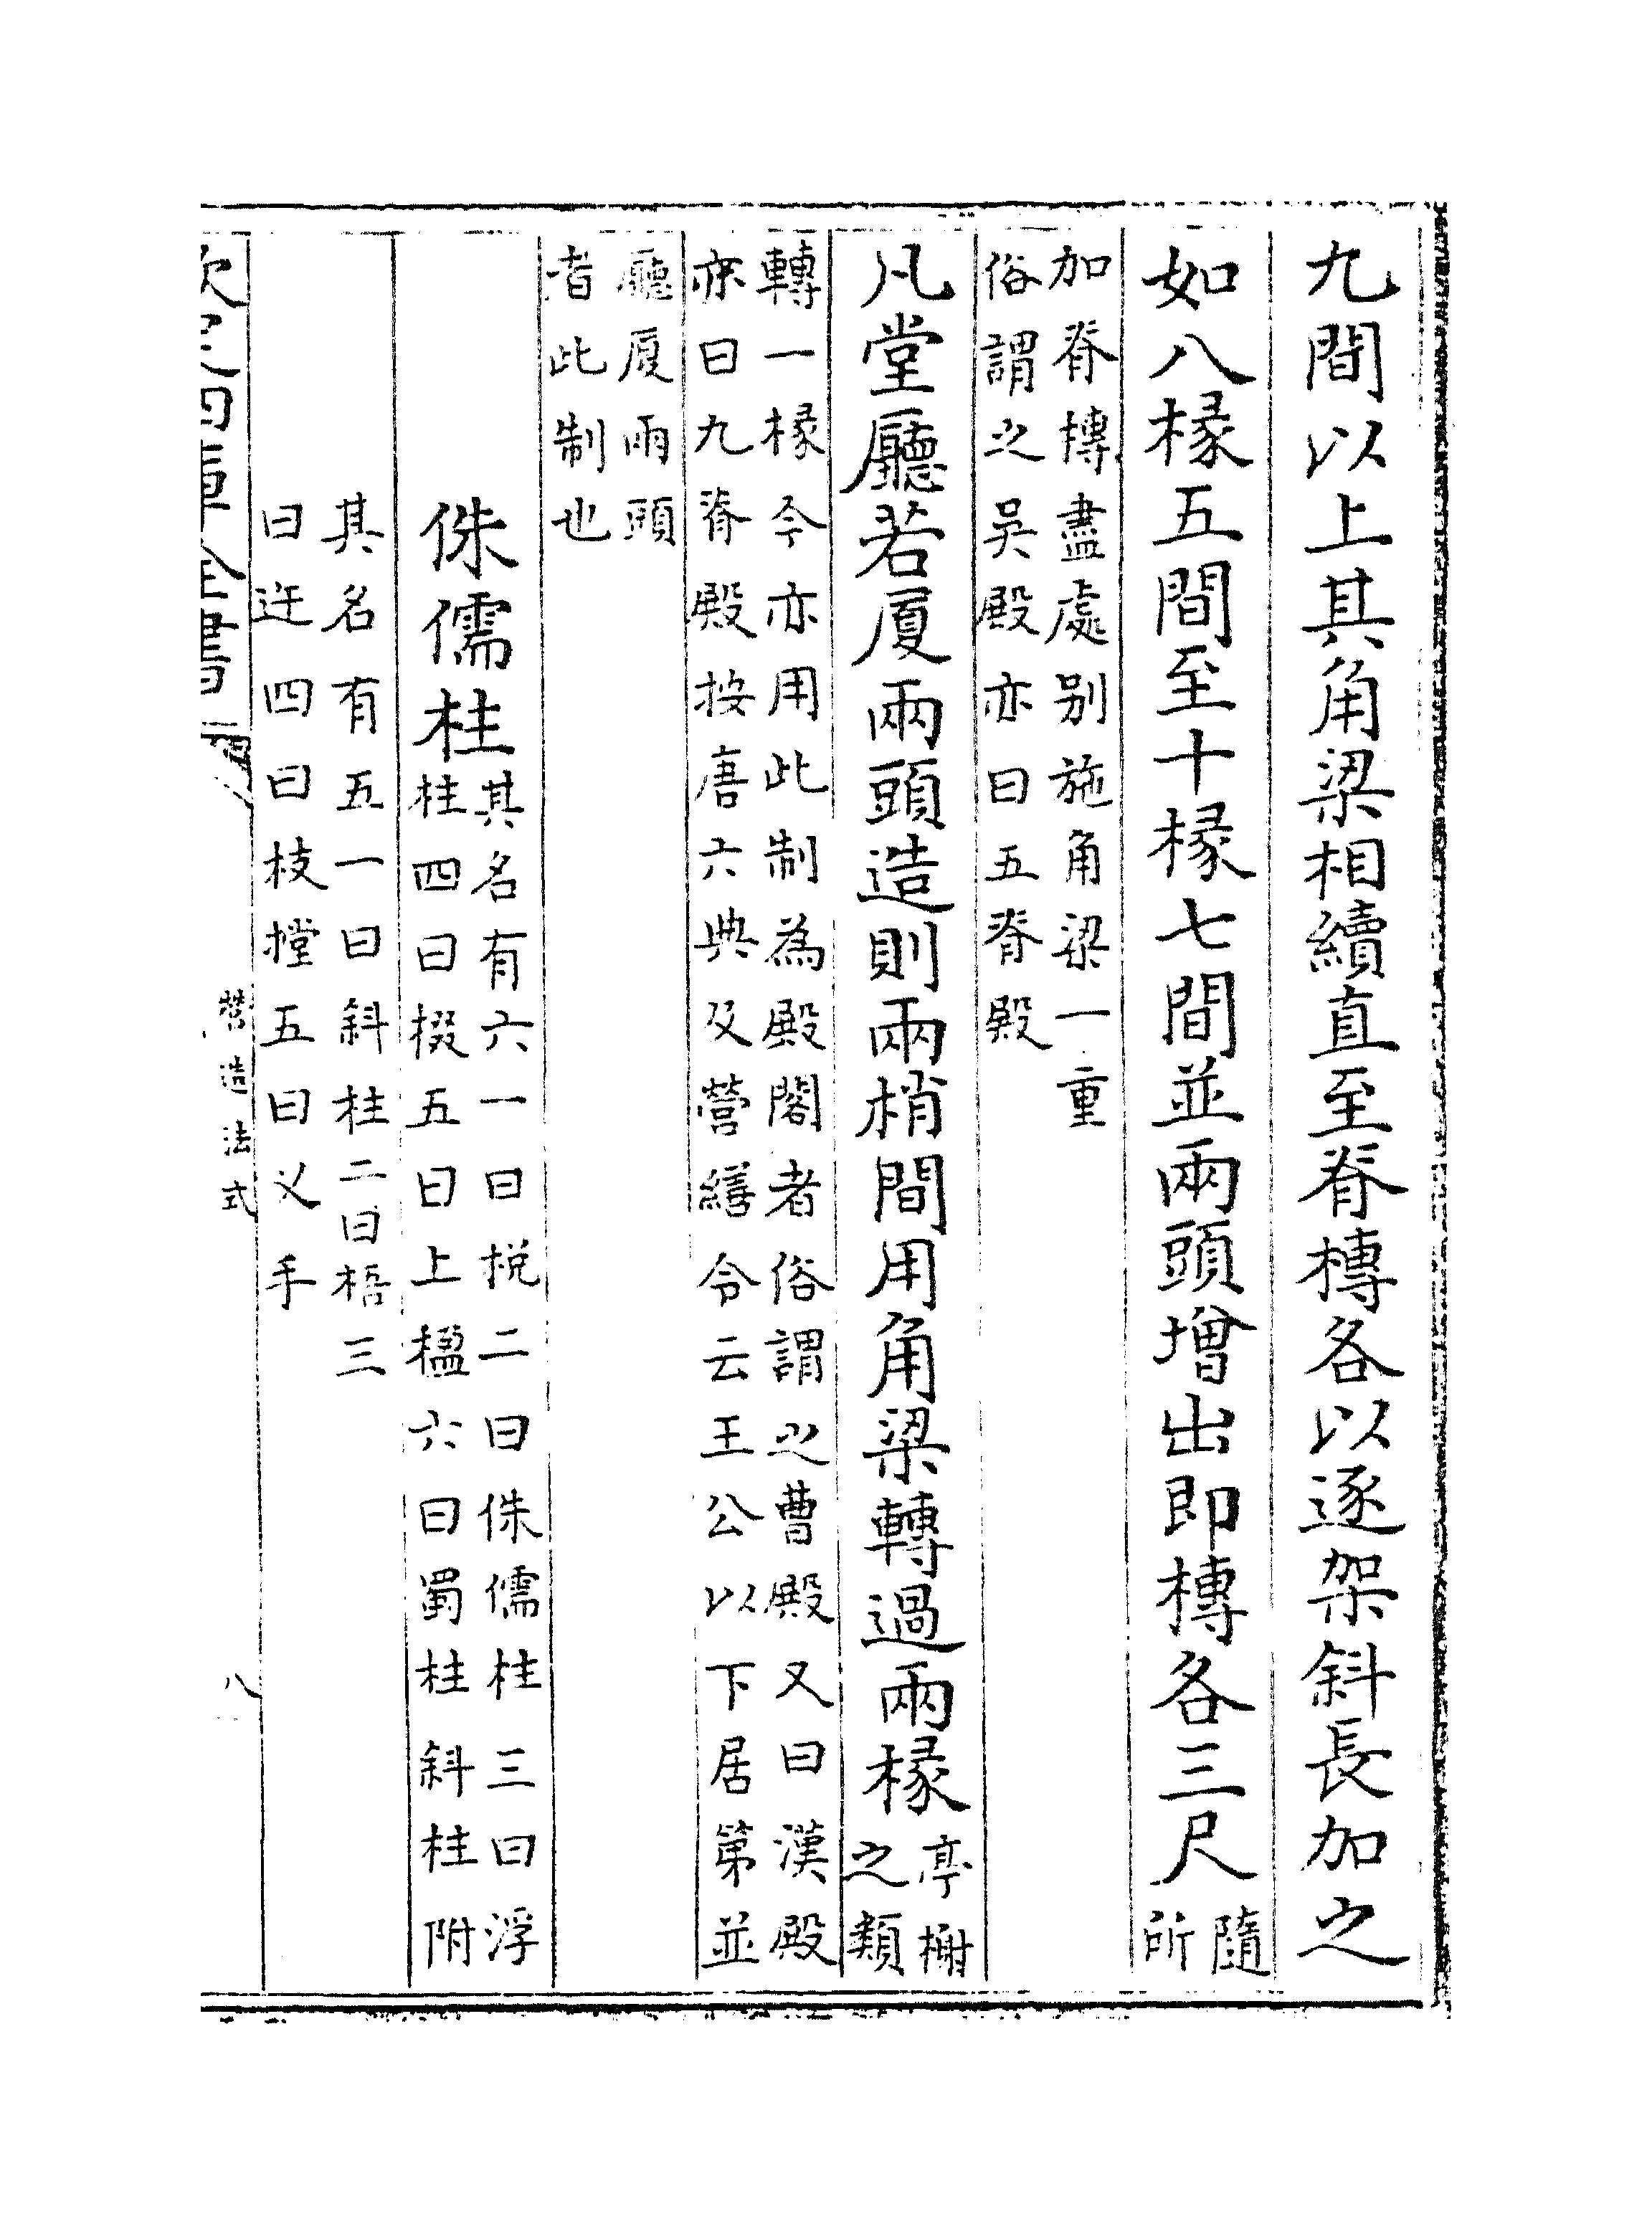 九間以上其角梁相續直至脊槫各以逐架斜長加之
如八椽五間至十椽七間並兩頭增出即槫各三尺隨
所
加脊槫盡處别施角梁一重
俗謂之吳殿亦曰五脊殿
凡堂廳若厦兩頭造則兩梢間用角梁轉過兩椽亭榭
之類
轉一椽今亦用此制為殿閣者俗謂之曹殿又曰漢殿
亦曰九脊殿按唐六典及營繕令云王公以下居第並
廳厦兩頭
者此制也
侏儒柱其名有六一曰梲二曰侏儒柱三曰浮
柱四曰棳五曰上楹六曰蜀柱斜柱附
其名有五一曰斜柱二曰梧三
曰迕四曰枝摚五曰义手
欽定四庫全書
營造法式
八